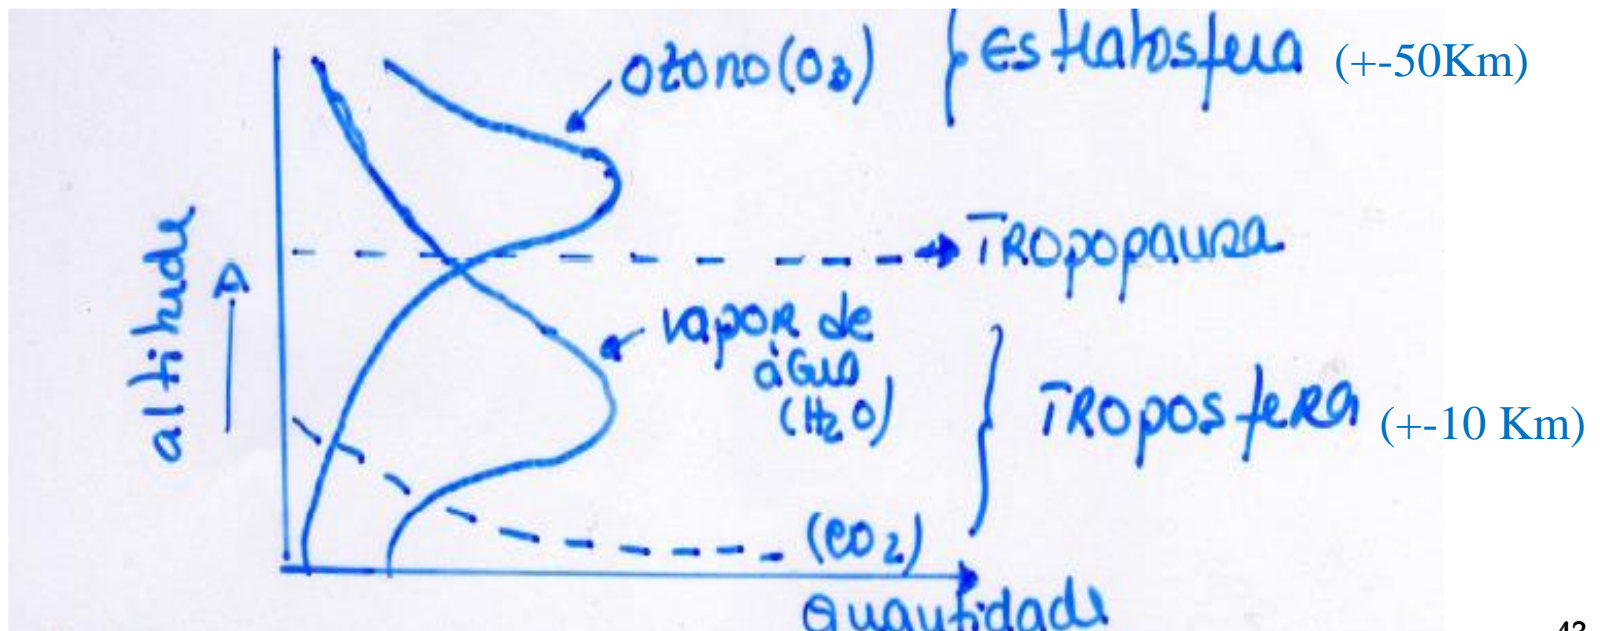 Ozono (O3)
Estratosfera (+-50Km)
altitude
Tropopausa
vapor de
água
(H2O)
Troposfera (+-10 Km)
(CO2)
Quantidade